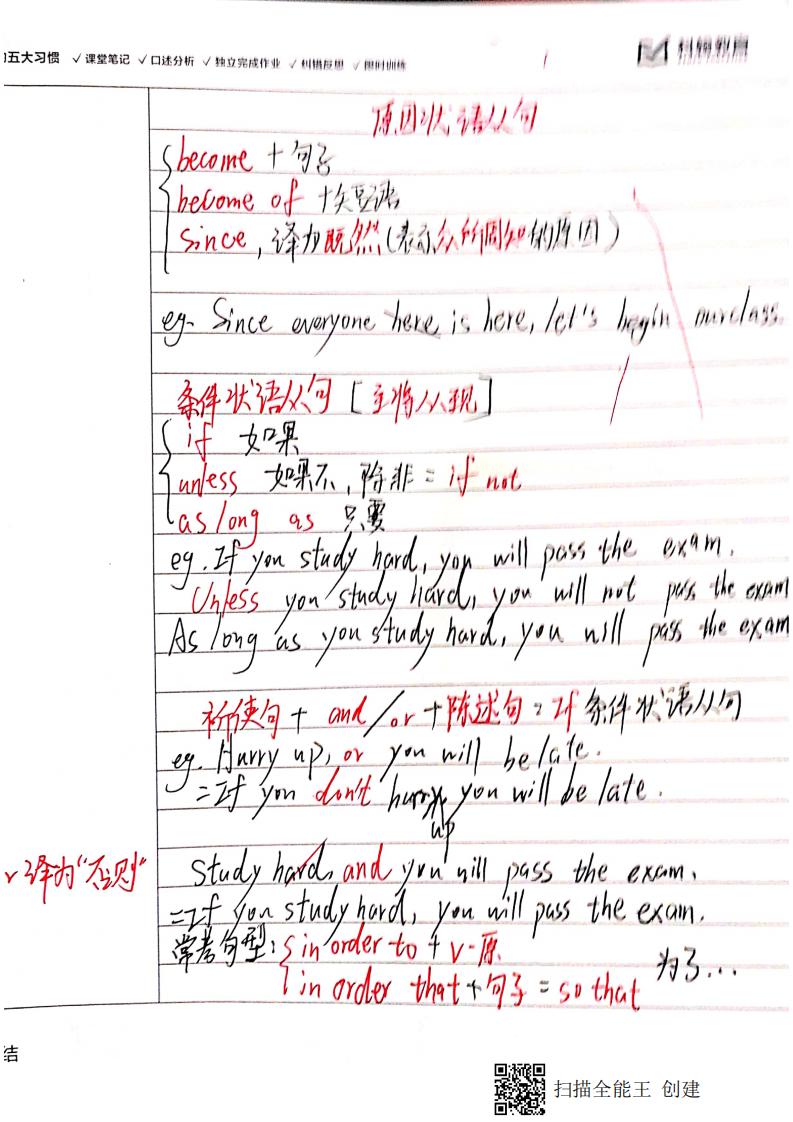 五大习惯 ✓课堂笔记 ✓口述分析 ✓独立完成作业 ✓纠错反思 ✓限时训练
原因状语从句
become + 句子
become of + 短语
since, 译为既然(表示众所周知的原因)
eg. Since everyone here is here, let's begin our class.
条件状语从句 [主将从现]
if 如果
unless 如果不, 除非 = if not
as long as 只要
eg. If you study hard, you will pass the exam.
Unless you study hard, you will not pass the exam
As long as you study hard, you will pass the exam
祈使句 + and/or + 陈述句 = If 条件状语从句
eg. Hurry up, or you will be late.
= If you don't hurry you will be late.
up
✓译为"否则"
Study hard, and you will pass the exam.
= If you study hard, you will pass the exam.
常考句型: in order to + v-原
in order that + 句子 = so that
为了...
结
扫描全能王 创建